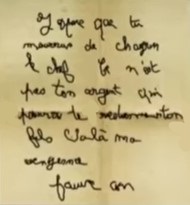 J'espere que tu
mourras de chagrin
le chef Ce n'est
pas ton argent qui
pourra te redonner ton
fils Voilà ma
vengeance
pauvre con